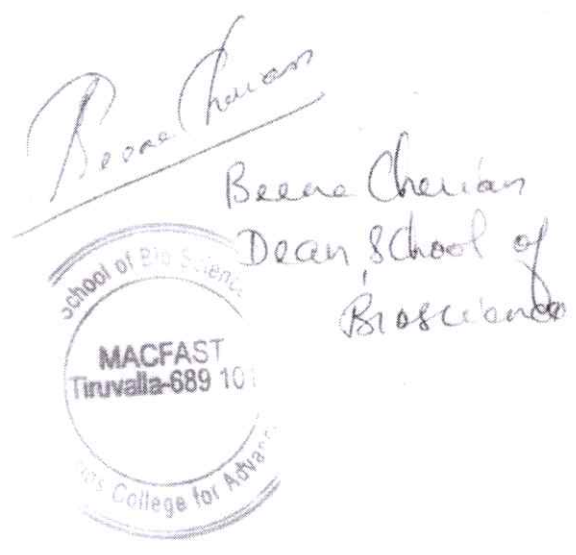 Beena Cherian
Beena Cherian
Dean, School of
Bioscience
School of Bio Scienc
MACFAST
Tiruvalla-689 101
College for Advan